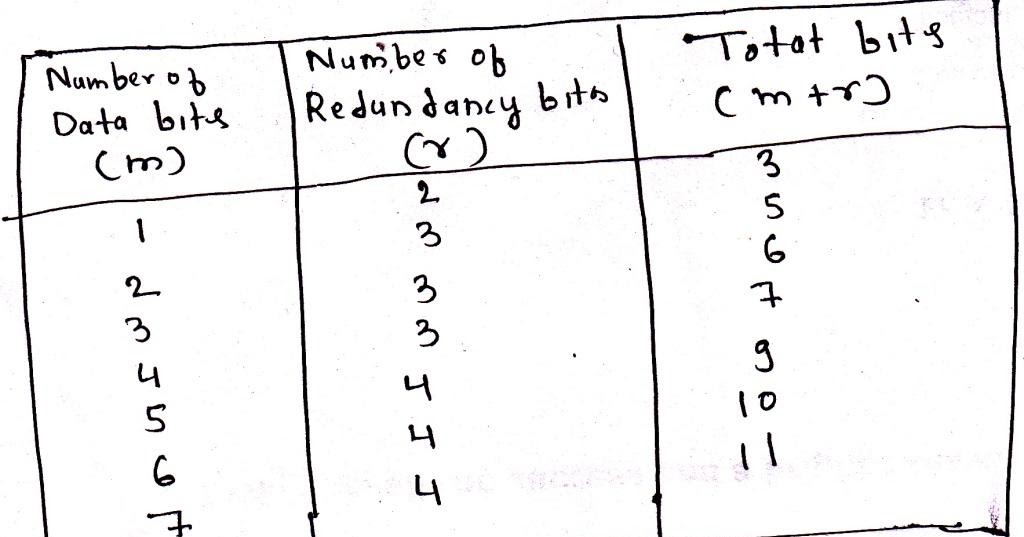 Number of Data bits (m) | Number of Redundancy bits (r) | Total bits (m+r)
1 | 2 | 3
2 | 3 | 5
3 | 3 | 6
4 | 3 | 7
5 | 4 | 9
6 | 4 | 10
7 | 4 | 11